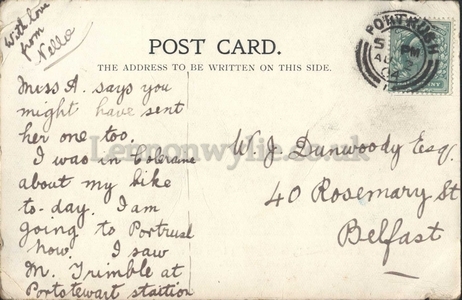 With love
from
Nello
POST CARD.
THE ADDRESS TO BE WRITTEN ON THIS SIDE.
PORTRUSH
AU
04
Miss A. says you
might have sent
her one too.
I was in Colerane
about my bike
to-day. I am
going to Portrush
now. I saw
M. Trimble at
Portstewart staition
W. J. Dunwoody Esq.
40 Rosemary St
Belfast
Lennonwylie.co.uk